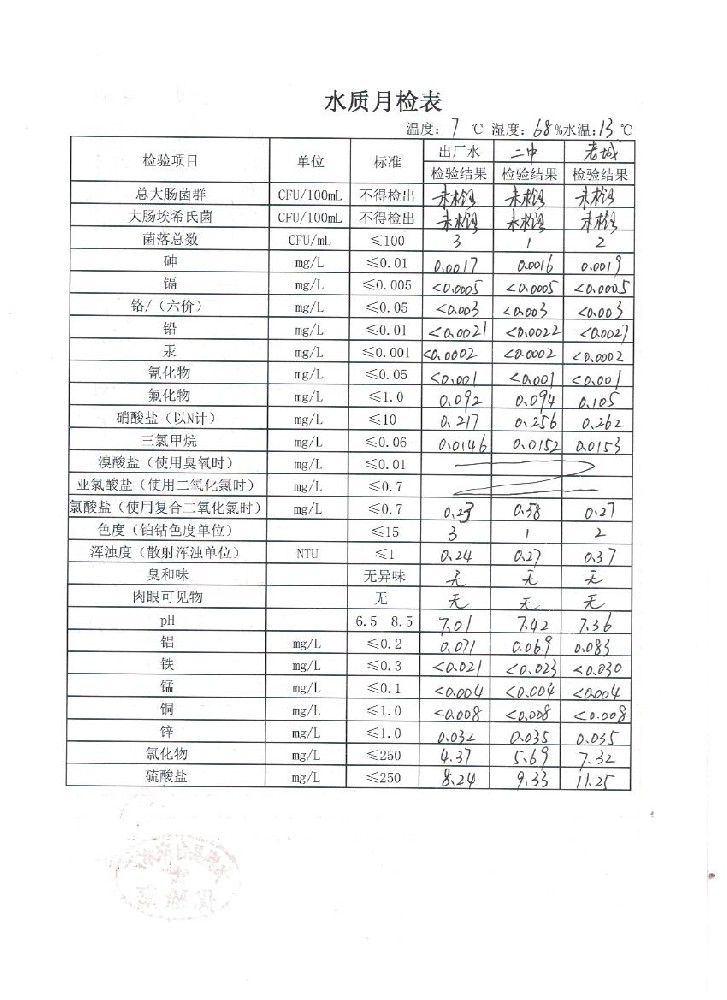 水质月检表
温度: 7 ℃ 湿度: 68 %水温: 13 ℃
检验项目 单位 标准 出厂水 二中 老城
检验结果 检验结果 检验结果
总大肠菌群 CFU/100mL 不得检出 未检出 未检出 未检出
大肠埃希氏菌 CFU/100mL 不得检出 未检出 未检出 未检出
菌落总数 CFU/mL ≤100 3 1 2
砷 mg/L ≤0.01 0.0017 0.0016 0.0019
镉 mg/L ≤0.005 <0.0005 <0.0005 <0.0005
铬/(六价) mg/L ≤0.05 <0.003 <0.003 <0.003
铅 mg/L ≤0.01 <0.0021 <0.0022 <0.0027
汞 mg/L ≤0.001 <0.0002 <0.0002 <0.0002
氰化物 mg/L ≤0.05 <0.001 <0.001 <0.001
氟化物 mg/L ≤1.0 0.092 0.094 0.105
硝酸盐(以N计) mg/L ≤10 0.217 0.256 0.262
三氯甲烷 mg/L ≤0.06 0.0146 0.0152 0.0153
溴酸盐(使用臭氧时) mg/L ≤0.01
亚氯酸盐(使用二氧化氯时) mg/L ≤0.7
氯酸盐(使用复合二氧化氯时) mg/L ≤0.7 0.23 0.58 0.27
色度(铂钴色度单位) ≤15 3 1 2
浑浊度(散射浑浊单位) NTU ≤1 0.24 0.27 0.37
臭和味 无异味 无 无 无
肉眼可见物 无 无 无 无
pH 6.5 8.5 7.01 7.42 7.36
铝 mg/L ≤0.2 0.071 0.069 0.083
铁 mg/L ≤0.3 <0.021 <0.023 <0.030
锰 mg/L ≤0.1 <0.004 <0.004 <0.004
铜 mg/L ≤1.0 <0.008 <0.008 <0.008
锌 mg/L ≤1.0 0.032 0.035 0.035
氯化物 mg/L ≤250 4.37 5.69 7.32
硫酸盐 mg/L ≤250 8.24 9.33 11.25